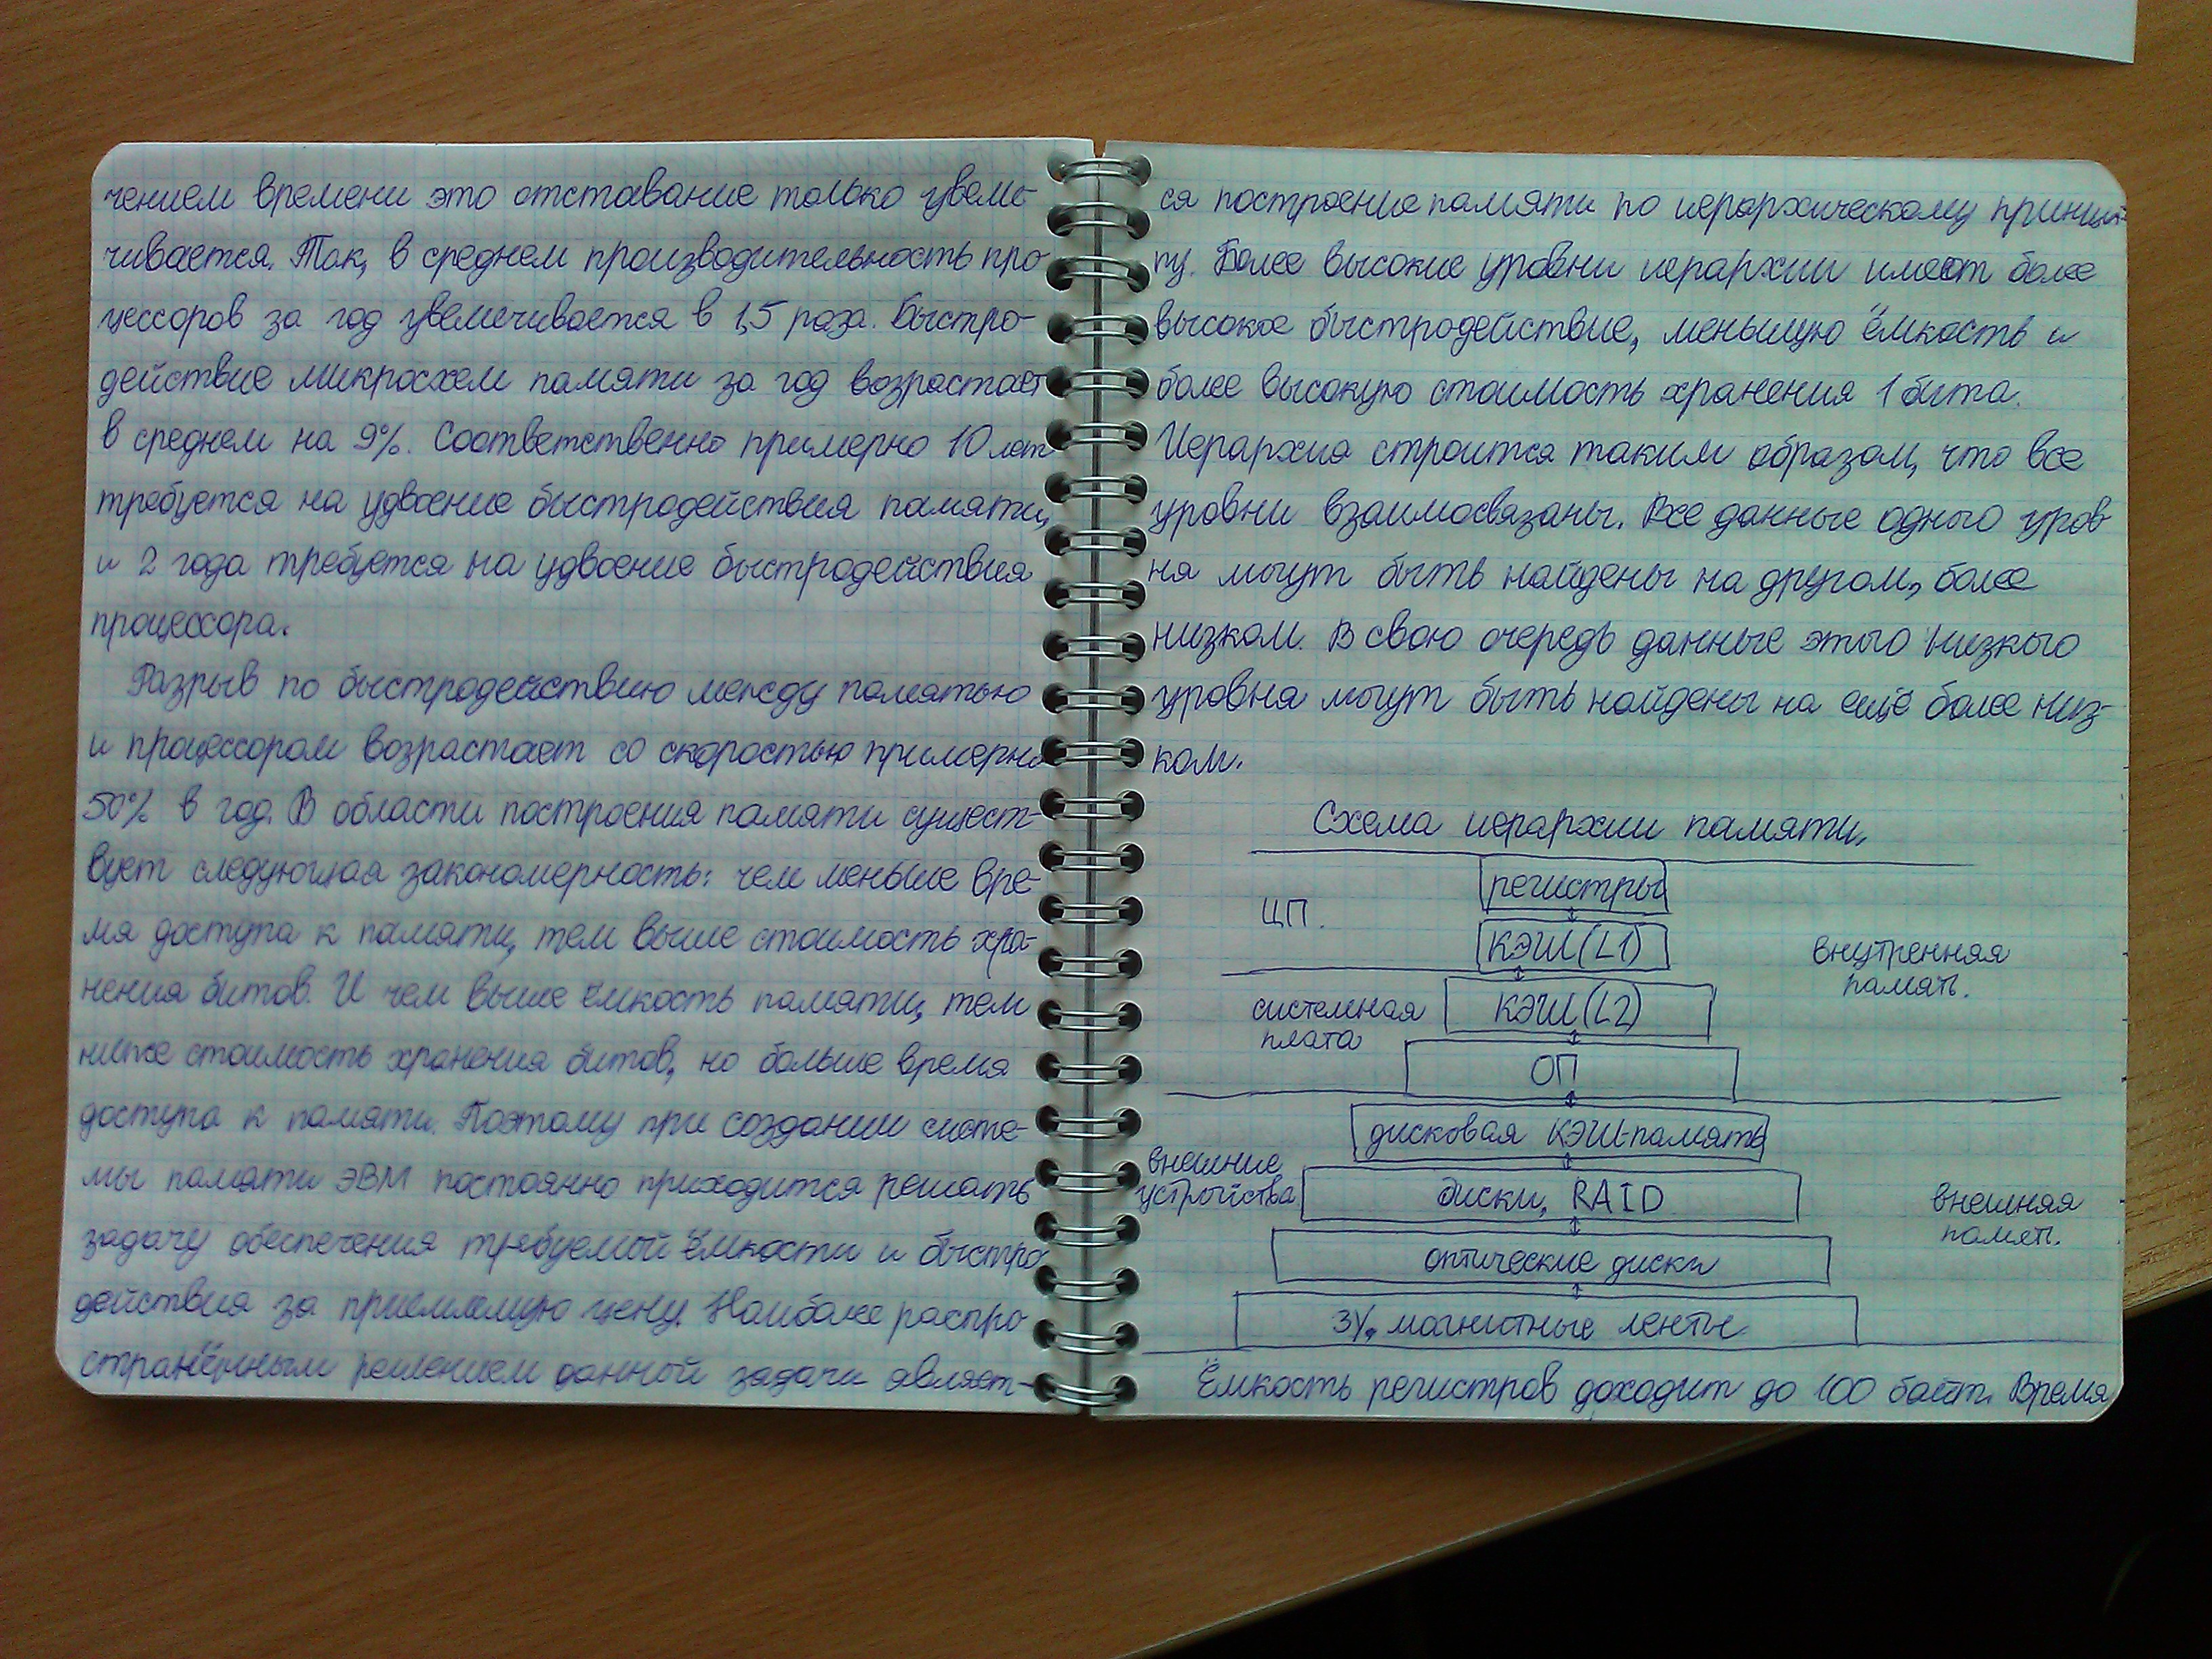 чением времени это отставание только увели-
чивается. Так, в среднем производительность про-
цессоров за год увеличивается в 1,5 раза. Быстро-
действие микросхем памяти за год возрастает
в среднем на 9%. Соответственно примерно 10 лет
требуется на удвоение быстродействия памяти,
и 2 года требуется на удвоение быстродействия
процессора.
Разрыв по быстродействию между памятью
и процессором возрастает со скоростью примерно
50% в год. В области построения памяти сущест-
вует следующая закономерность: чем меньше вре-
мя доступа к памяти, тем выше стоимость хра-
нения битов. И чем выше ёмкость памяти, тем
ниже стоимость хранения битов, но больше время
доступа к памяти. Поэтому при создании систе-
мы памяти ЭВМ постоянно приходится решать
задачу обеспечения требуемой ёмкости и быстро
действия за приемлемую цену. Наиболее распро
странённым решением данной задачи являет-
ся построение памяти по иерархическому принци-
пу. Более высокие уровни иерархии имеют более
высокое быстродействие, меньшую ёмкость и
более высокую стоимость хранения 1 бита.
Иерархия строится таким образом, что все
уровни взаимосвязаны. Все данные одного уров
ня могут быть найдены на другом, более
низком. В свою очередь данные этого низкого
уровня могут быть найдены на ещё более низ-
ком.
Схема иерархии памяти.
регистры
ЦП.
КЭШ(L1)
внутренняя
память.
КЭШ(L2)
системная
плата
ОП
дисковая КЭШ-память
внешние
устройства
диски, RAID
внешняя
память.
оптические диски
ЗУ, магнитные ленты
Ёмкость регистров доходит до 100 байт. Время